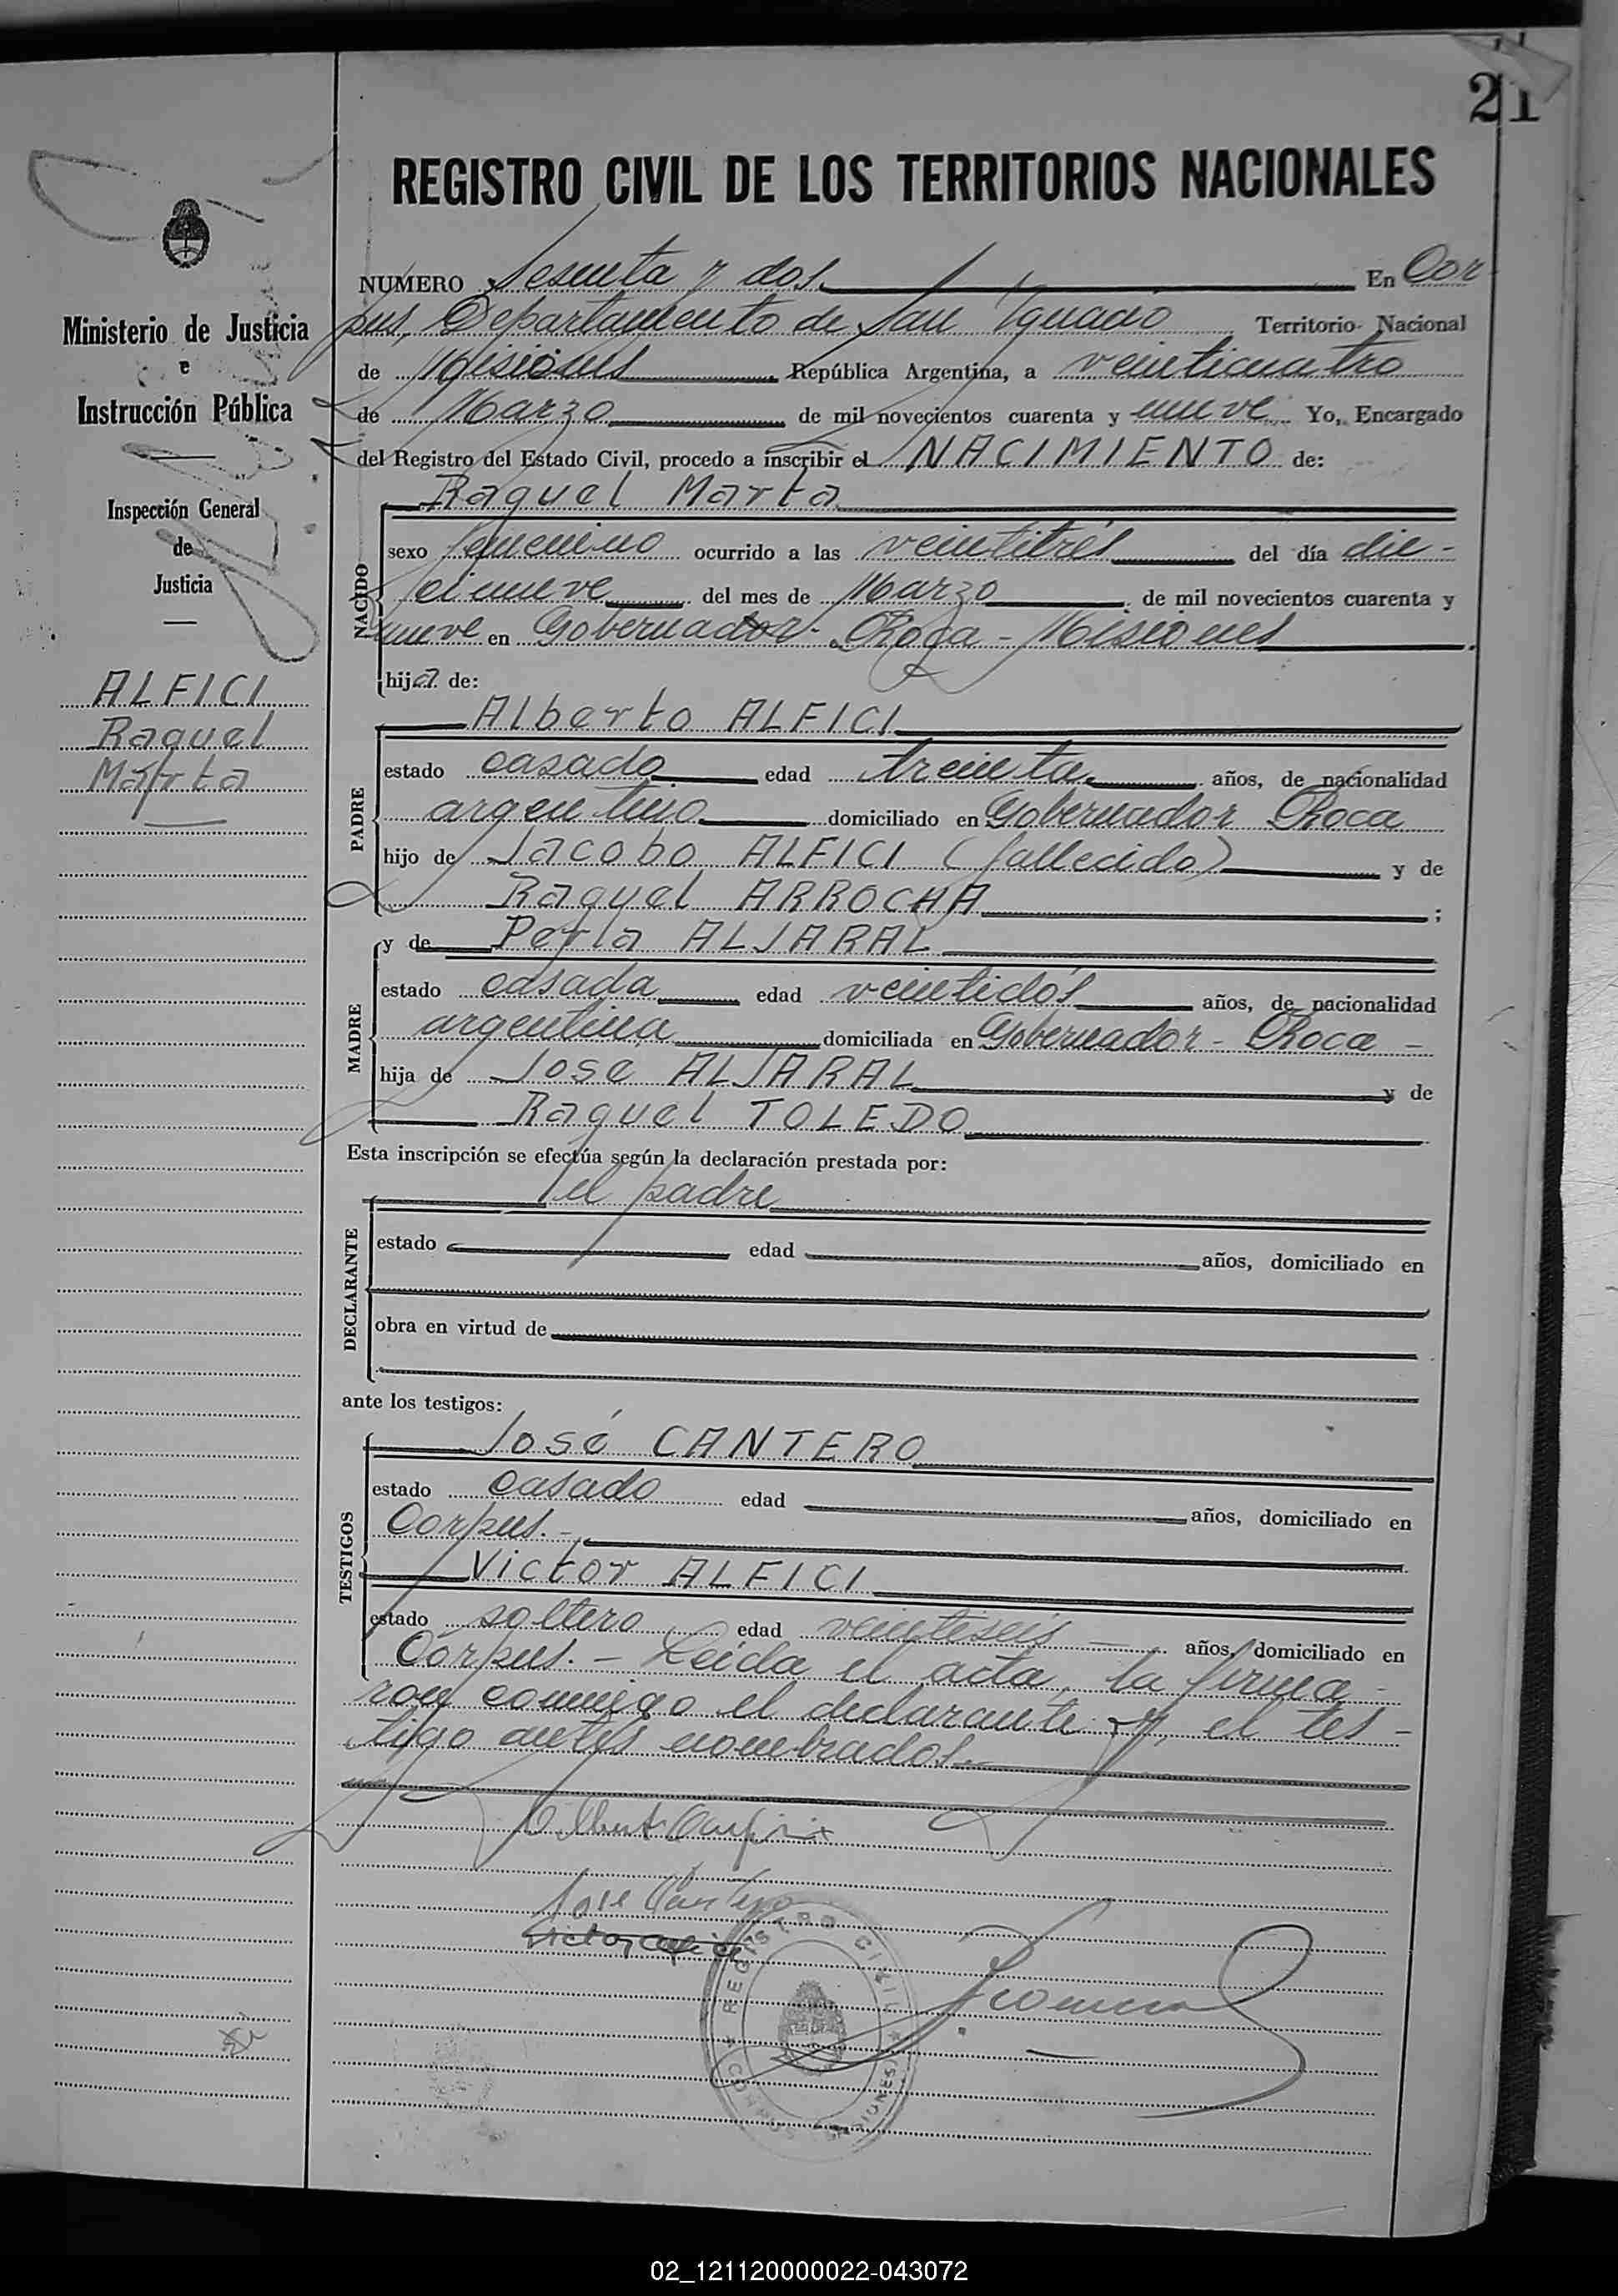 21
REGISTRO CIVIL DE LOS TERRITORIOS NACIONALES
NUMERO Sesenta y dos En Cor
pus, Departamento de San Ignacio Territorio Nacional
de Misiones República Argentina, a veinticuatro
de Marzo de mil novecientos cuarenta y nueve Yo, Encargado
del Registro del Estado Civil, procedo a inscribir el NACIMIENTO de:
Raquel Marta
sexo femenino ocurrido a las veintitrés del día die-
cinueve del mes de Marzo de mil novecientos cuarenta y
nueve en Gobernador Roca - Misiones
hija de:
NACIDO
Alberto ALFICI
estado casado edad treinta años, de nacionalidad
argentino domiciliado en Gobernador Roca
hijo de Jacobo ALFICI (fallecido) y de
Raquel ARROCHA ;
PADRE
y de Perla ALJARAL
estado casada edad veintidós años, de nacionalidad
argentina domiciliada en Gobernador - Roca -
hija de José ALJARAL y de
Raquel TOLEDO
MADRE
Esta inscripción se efectúa según la declaración prestada por:
el padre
estado edad años, domiciliado en
obra en virtud de
DECLARANTE
ante los testigos:
José CANTERO
estado casado edad años, domiciliado en
Corpus. -
Victor ALFICI
estado soltero edad veintiseis - años, domiciliado en
Corpus. - Leída el acta, la firma-
ron conmigo el declarante y el tes-
tigo antes nombrados.
TESTIGOS
Jose Cantero
victor alfici
REGISTRO CIVIL
CORPUS MISIONES
Ministerio de Justicia
e
Instrucción Pública
Inspección General
de
Justicia
ALFICI
Raquel
Marta
02_121120000022-043072